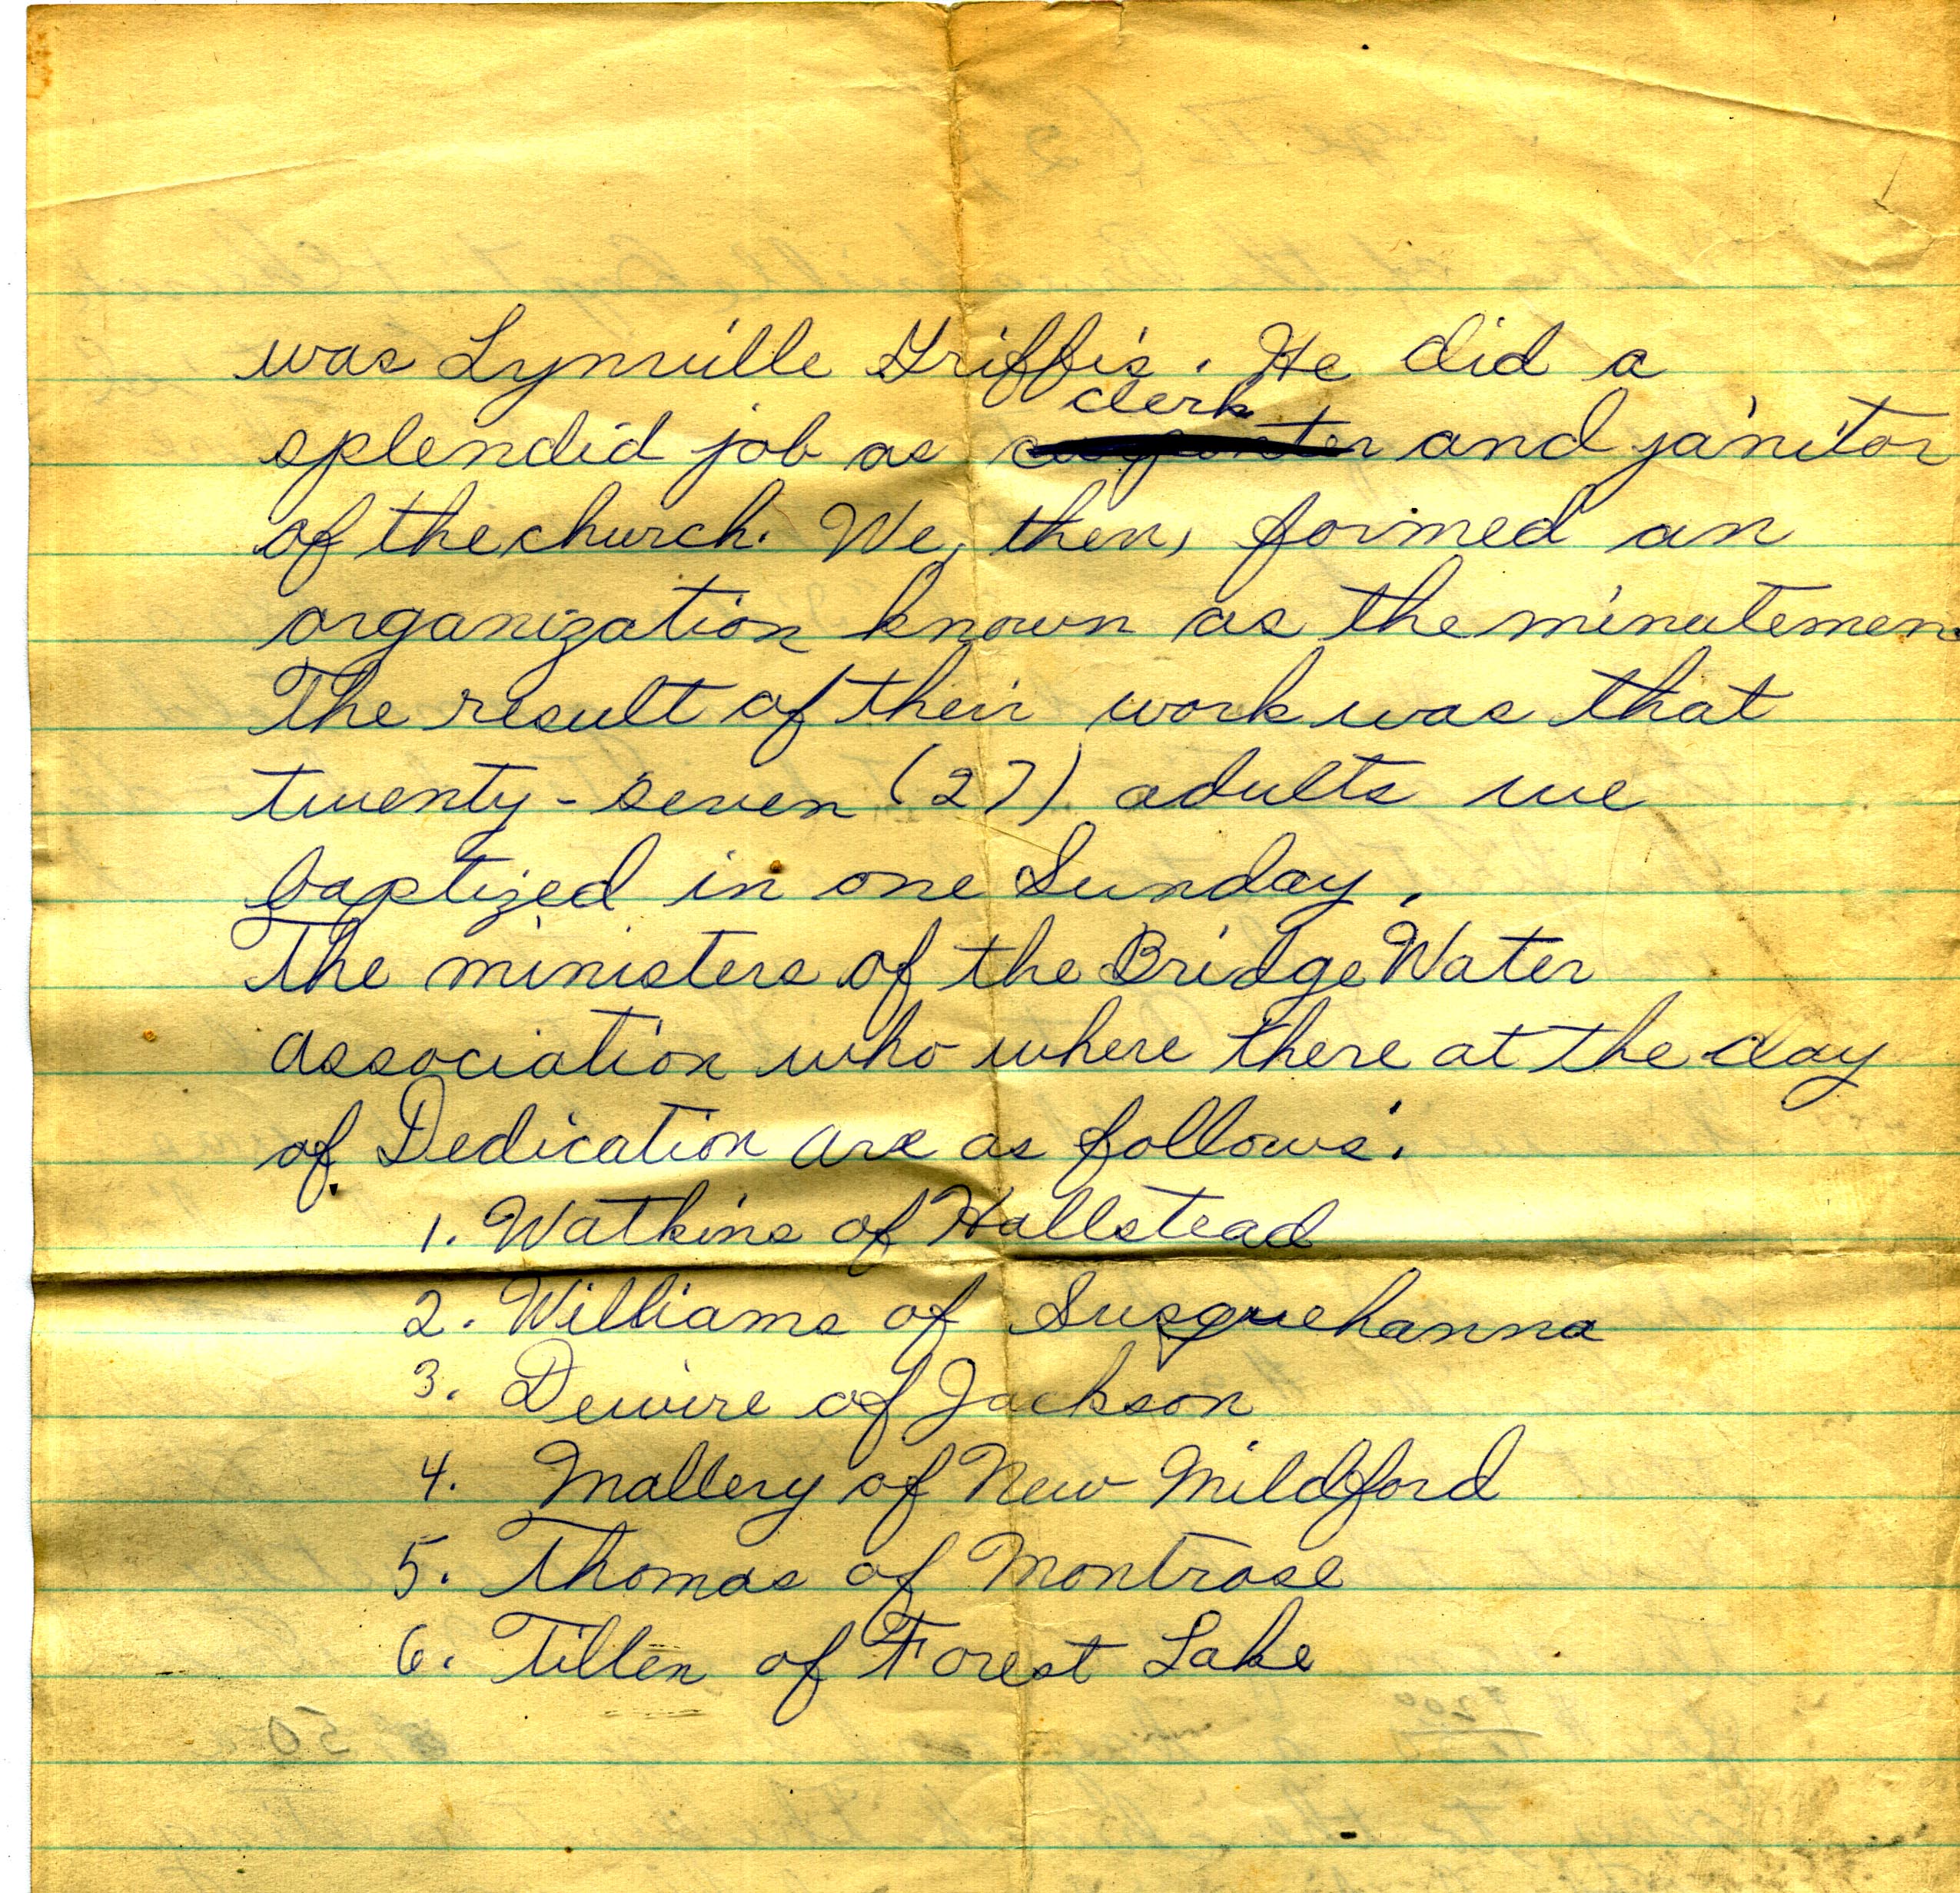 was Lynville Griffis. He did a
clerk
splendid job as carpenter and janitor
of the church. We, then, formed an
organization known as the minutemen.
The result of their work was that
twenty-seven (27) adults we
baptized in one Sunday.
The ministers of the Bridge Water
association who where there at the day
of Dedication are as follows:
1. Watkins of Hallstead
2. Williams of Susquehanna
3. Dewire of Jackson
4. Mallery of New Mildford
5. Thomas of Montrose
6. Tillen of Forest Lake